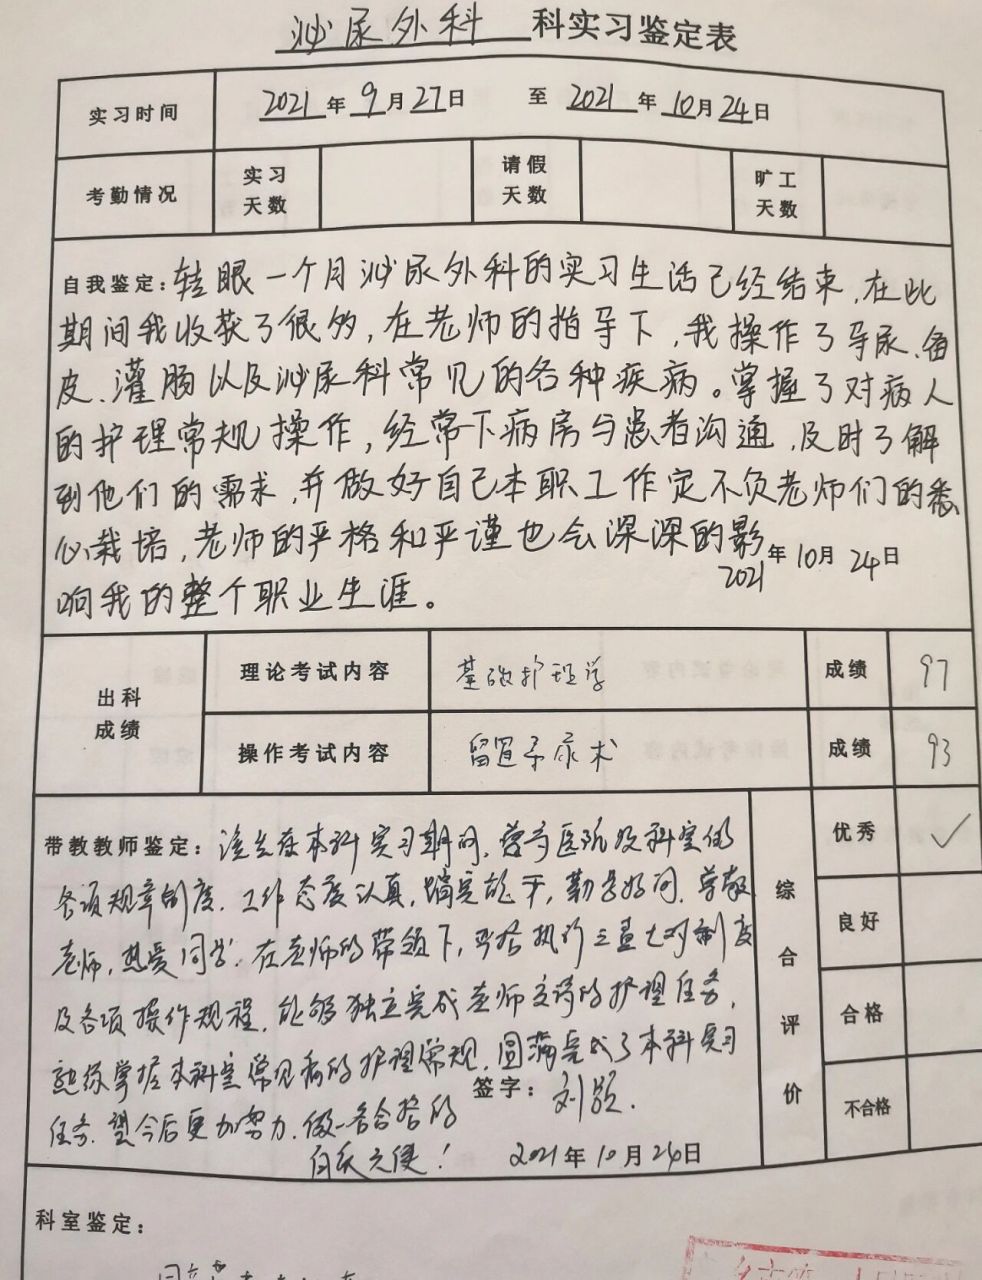 泌尿外科 科实习鉴定表
实习时间 2021 年 9 月 27 日 至 2021 年 10 月 24 日
考勤情况 实习天数 请假天数 旷工天数
自我鉴定：转眼一个月泌尿外科的实习生活已经结束,在此
期间我收获了很多,在老师的指导下,我操作了导尿、备
皮、灌肠以及泌尿科常见的各种疾病。掌握了对病人
的护理常规操作,经常下病房与患者沟通,及时了解
到他们的需求,并做好自己本职工作定不负老师们的悉
心栽培,老师的严格和严谨也会深深的影
响我的整个职业生涯。
2021 年 10 月 24 日
出科成绩 理论考试内容 基础护理学 成绩 97
操作考试内容 留置导尿术 成绩 93
带教教师鉴定：该生在本科实习期间,遵守医院及科室的
各项规章制度,工作态度认真,踏实能干,勤学好问,尊敬
老师,热爱同学,在老师的带领下,严格执行三查七对制度
及各项操作规程,能够独立完成老师交待的护理任务,
熟练掌握本科室常见病的护理常规,圆满完成了本科实习
任务,望今后更加努力,做一名合格的
白衣天使!
签字：刘
2021 年 10 月 24 日
综合评价
优秀 ✓
良好
合格
不合格
科室鉴定：